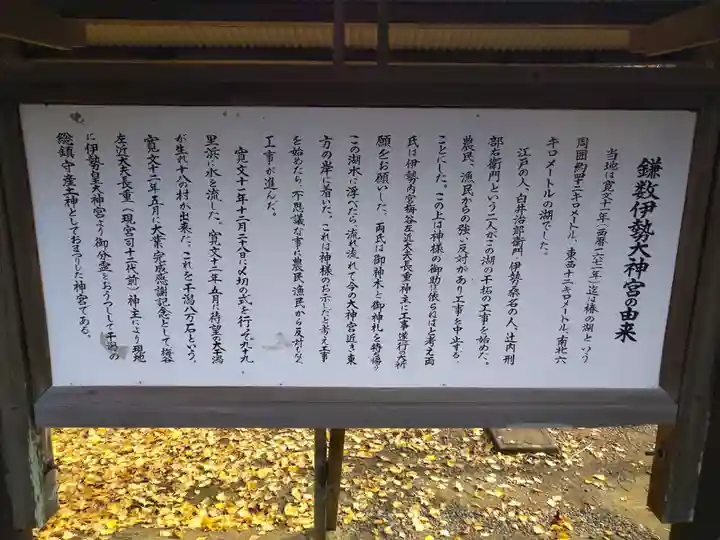 鎌数伊勢大神宮の由来
当地は寛文十一年(西暦一六七一年)迄は椿の湖という
周囲約四十二キロメートル、東西十二キロメートル、南北六
キロメートルの湖でした。
江戸の人、白井治郎衛門、伊勢桑名の人、辻内刑
部右衛門という二人がこの湖の干拓の工事を始めた。
農民、漁民からの強い反対があり工事を中止する
ことにした。この上は神様の御助に依らねばと考え両
氏は伊勢内宮梅谷左近大夫長重神主に工事遂行の大祈
願をお願いした。両氏は御神木と御神札を持ち帰り
この湖水に浮べたら流れ流れて今の大神宮近き東
方の岸に着いた。これは神様のお示しだと考え工事
を始めたら、不思議な事に農民漁民から反対もなく
工事が進んだ。
寛文十一年十二月二十八日に〆切の式を行って九十九
里浜に水を流した。寛文十二年五月に待望の大干潟
が生れ十八の村が出来た。これを干潟八万石という。
寛文十二年五月に大業完成感謝記念として梅谷
左近大夫長重(現宮司十二代前)神主により現地
に伊勢皇大神宮より御分霊をおうつしして干潟の
総鎮守産土神としておまつりした神宮である。